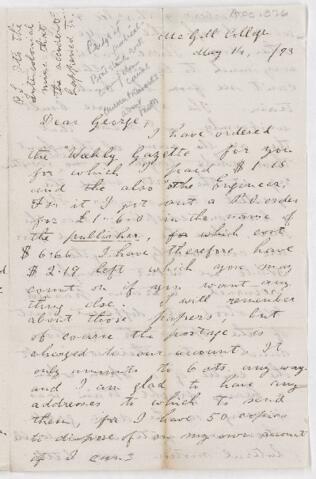 McGill College
May 14, /73
P.S. It's the
Drummond
mine that
the accident
happened in.
Dear George,
I have ordered
the "Weekly Gazette" for you
for which I paid $1.15
and the also "the Engineer,
for it I got out a P.O. order
for £1-6-0 in the name of
the publisher, for which cost
$6.66 I have therefore have
$2.19 left which you may
count on if you want any
thing else. I will remember
about those papers, but
of course the postage is
charged to our account. It
only amounts to 6 cts any way
and I am glad to have any
addresses to which to send
them, for I have 50 copies
to dispose of on my own account
if I can.